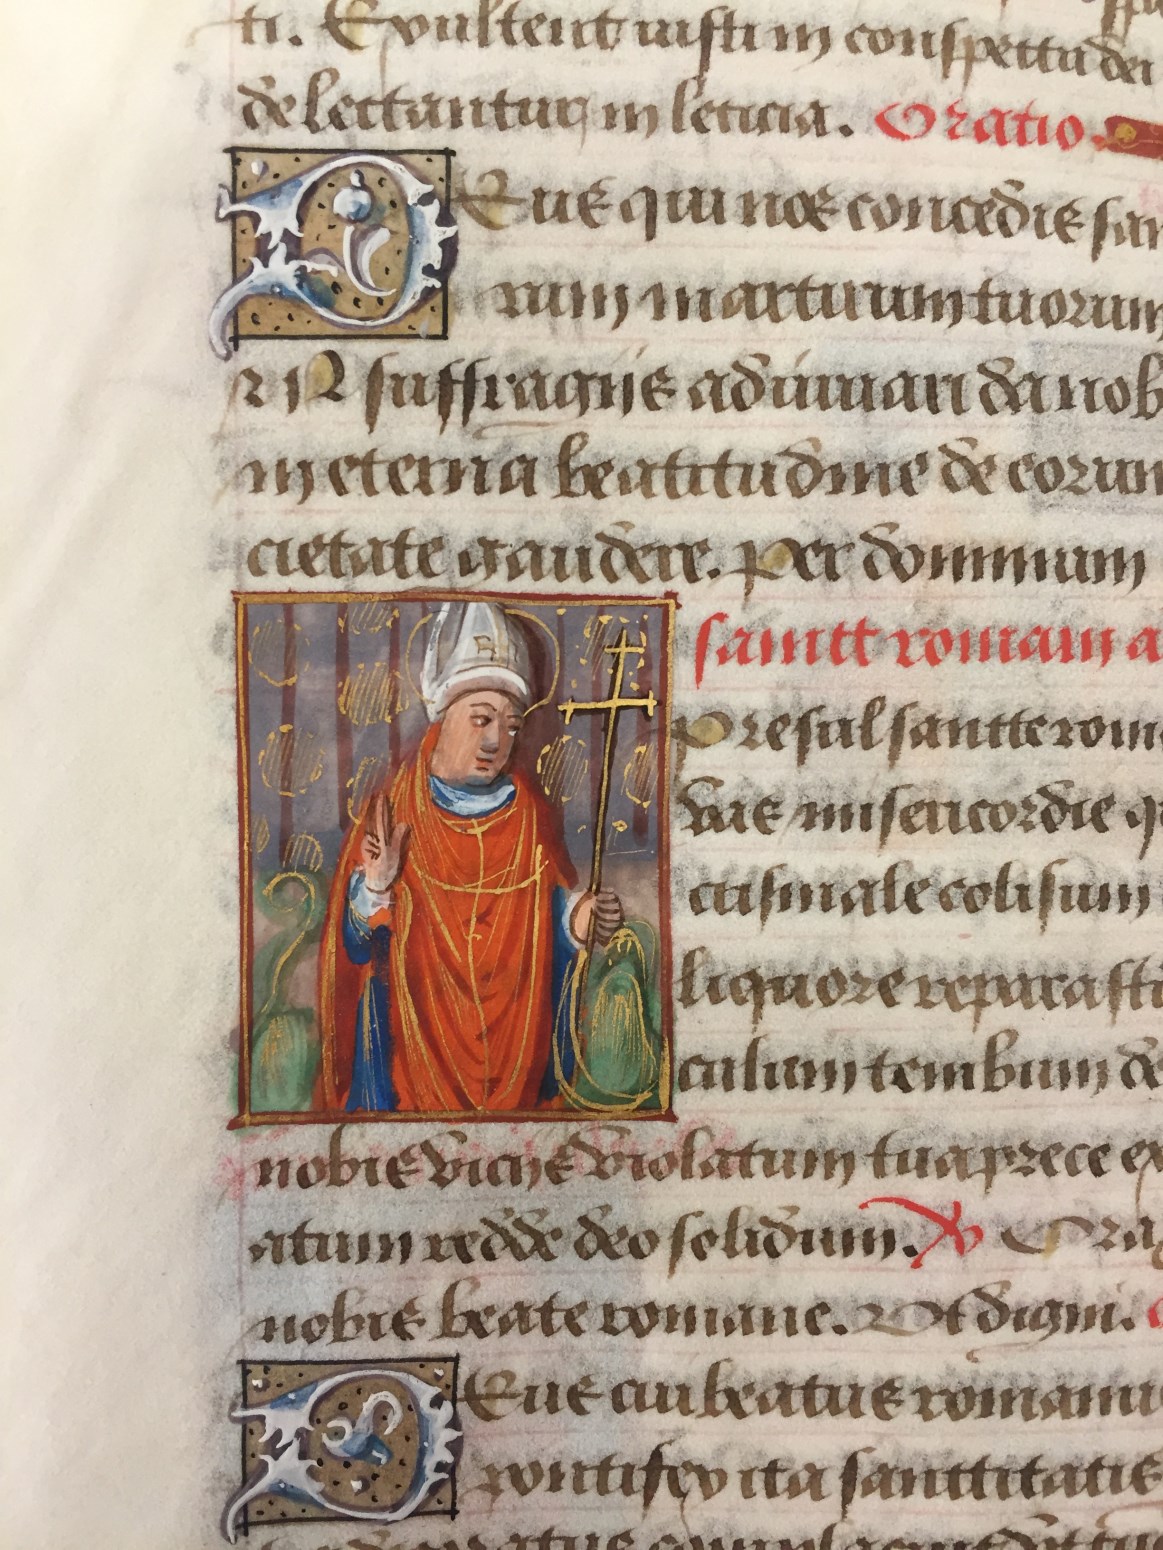 ti. Exultent iusti in conspectu dei
delectantur in leticia. Oratio.
Deus qui nos concedis san
rum martirum tuorum
suffragiis adiuuari da nob
in eterna beatitudine de eorum
cietate gaudere. Per dominum
sancti romani a
Presul sancte rom
uas misericordie q
crismale colisum
liquore reparasti
culum tembum de
nobis viciis violatum tua prece ex
atum redde deo solidum. Ora
nobis beate romane. Ut digni.
Deus cui beatus romanu
pontifex ita sanctitatis